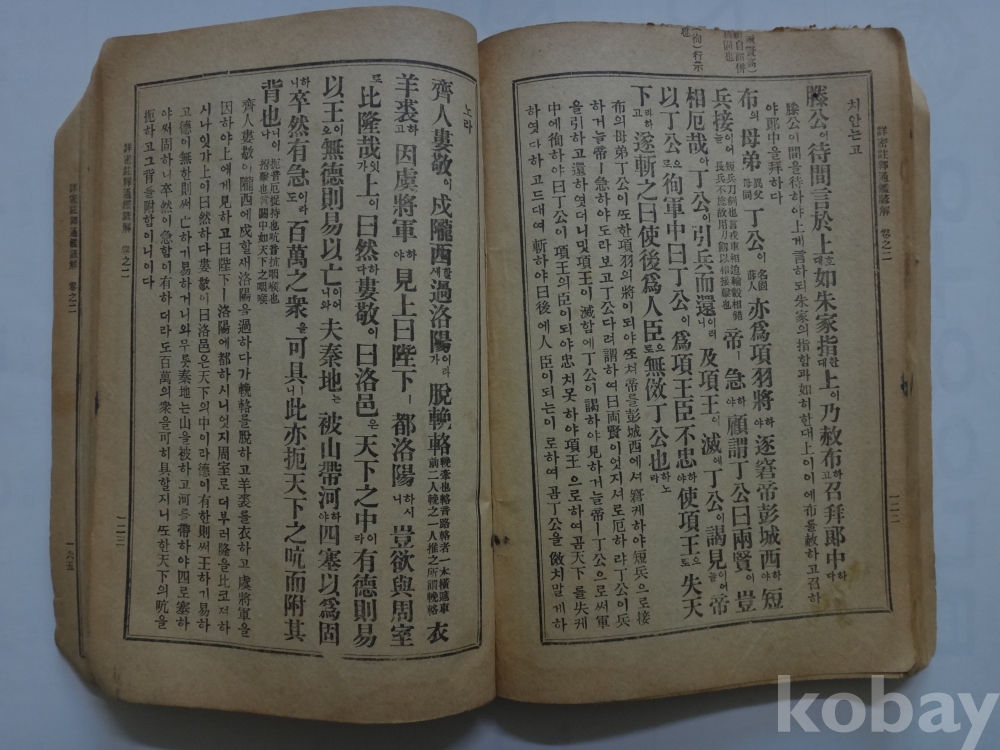 詳密註釋通鑑諺解 卷之二
二二
치안는고
滕公이待間言於上호대如朱家指한대上이乃赦布하고召拜郎中하다
滕公이間을待하야上게言하되朱家의指함과如히한대上이이에布를赦하고召하
야郎中을拜하다
布의母弟異父母同丁公이名固薛人亦爲項羽將하야逐窘帝彭城西하야短
兵接이어늘短兵刀劍也言戎車相迫輪轂相錯長兵不施故用刀劍以相接擊也帝ㅣ急하야顧謂丁公曰兩賢이豈
相厄哉아丁公이引兵而還이러니及項王이滅에丁公이謁見이어늘帝
以丁公으로徇軍中曰丁公이爲項王臣不忠하야使項王으로失天
下라하고遂斬之曰使後爲人臣으로無傚丁公也하노라
布의母弟丁公이또한項羽의將이되야또쳐帝를彭城西에서窘케하야短兵으로接
하거늘帝ㅣ急하야도라보고丁公다려謂하여曰両賢이엇지셔로厄하랴丁公이兵
을引하고還하엿더니및項王이滅함에丁公이謁하야見하거늘帝ㅣ丁公으로써軍
中에徇하야曰丁公이項王의臣이되야忠치못하야項王으로하여곰天下를失케
하엿다하고드대여斬하야曰後에人臣이되는이로하여곰丁公을傚치말게하
노라
齊人婁敬이戍隴西할새過洛陽이라가脫輓輅輓牽也輅音路輅者一木橫遮車前二人輓之一人推之所謂輓輅衣
羊裘하고因虞將軍하야見上曰陛下ㅣ都洛陽하시니豈欲與周室로
比隆哉잇가上이曰然하다婁敬이曰洛邑은天下之中이라有德則易
以王이오無德則易以亡이어니와夫秦地는被山帶河하야四塞以爲固하니
卒然有急이라도百萬之衆을可具니此亦扼天下之吭而附其
背也니이다扼音厄捉持也吭音抗咽喉也搤擊也言關中如天下之咽喉
齊人婁敬이隴西에戍할새洛陽을過하다가輓輅를脫하고羊裘를衣하고虞將軍을
因하야上에게見하고曰陛下ㅣ洛陽에都하시니엇지周室로더부러隆을比코져하
시나잇가上이曰然하다婁敬이曰洛邑은天下의中이라德이有한則써王하기易하
고德이無한則써亡하기易하거니와무릇秦地는山을被하고河를帶하야四로塞하
야써固하니卒然이急함이有하더라도百萬의衆을可히具할지니또한天下의吭을
扼하고그背를附함이니이다
詳密註釋通鑑諺解 卷之二
二三
一六五
kobay